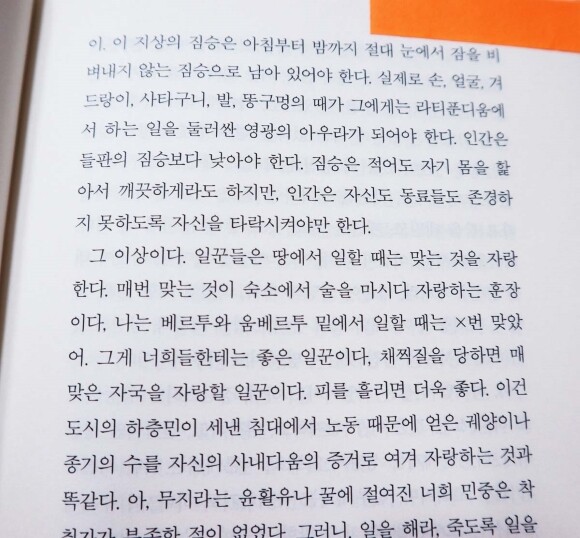 이. 이 지상의 짐승은 아침부터 밤까지 절대 눈에서 잠을 비
벼내지 않는 짐승으로 남아 있어야 한다. 실제로 손, 얼굴, 겨
드랑이, 사타구니, 발, 똥구멍의 때가 그에게는 라티푼디움에
서 하는 일을 둘러싼 영광의 아우라가 되어야 한다. 인간은
들판의 짐승보다 낮아야 한다. 짐승은 적어도 자기 몸을 핥
아서 깨끗하게라도 하지만, 인간은 자신도 동료들도 존경하
지 못하도록 자신을 타락시켜야만 한다.
그 이상이다. 일꾼들은 땅에서 일할 때는 맞는 것을 자랑
한다. 매번 맞는 것이 숙소에서 술을 마시다 자랑하는 훈장
이다, 나는 베르투와 움베르투 밑에서 일할 때는 ×번 맞았
어. 그게 너희들한테는 좋은 일꾼이다, 채찍질을 당하면 매
맞은 자국을 자랑할 일꾼이다. 피를 흘리면 더욱 좋다. 이건
도시의 하층민이 세낸 침대에서 노동 때문에 얻은 궤양이나
종기의 수를 자신의 사내다움의 증거로 여겨 자랑하는 것과
똑같다. 아, 무지라는 윤활유나 꿀에 절여진 너희 민중은 착
취자가 부족한 적이 없었다. 그러니, 일을 해라, 죽도록 일을